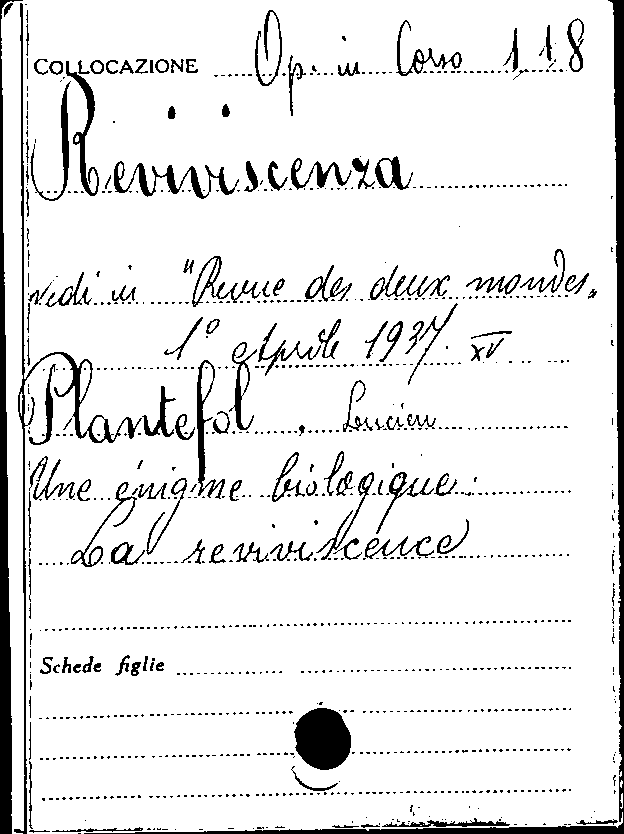 COLLOCAZIONE Op. in Corso 118
Reviviscenza
vedi in "Revue des deux mondes"
1º Aprile 1937. XV
Plantefol. Lucien
Une énigme biologique:
La reviviscence
Schede figlie